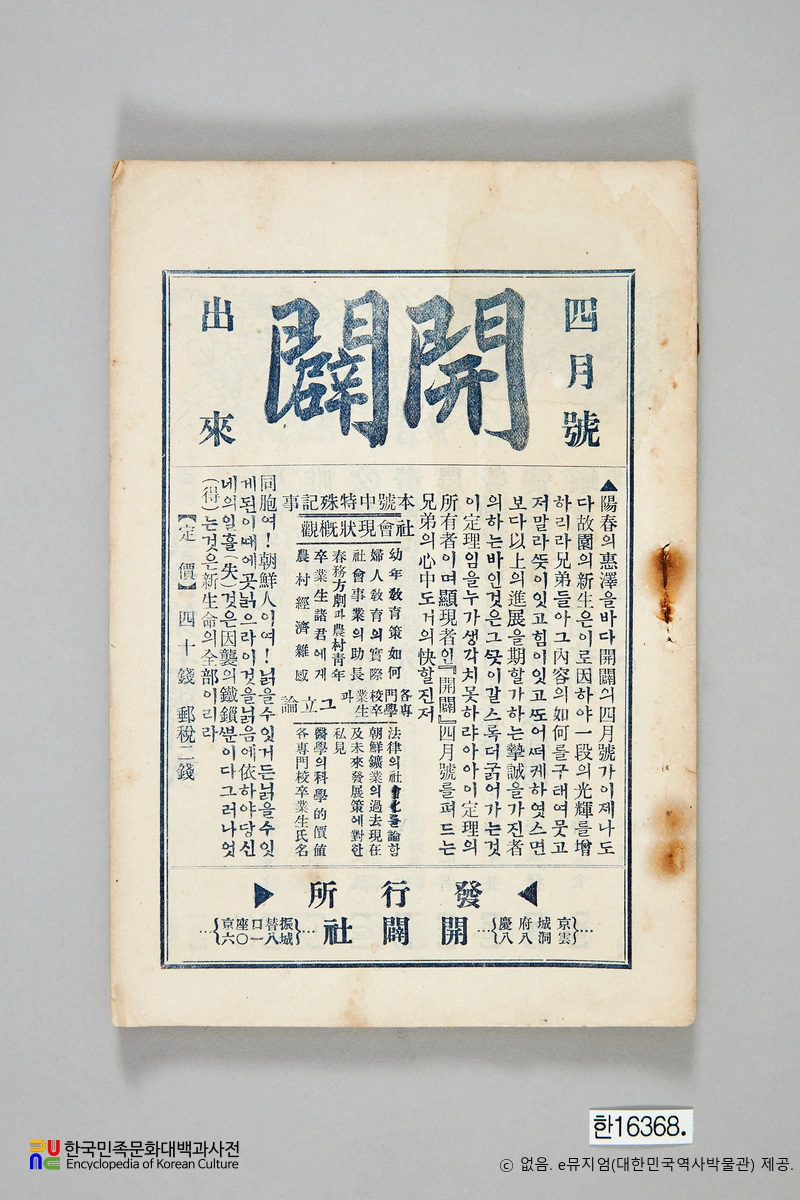 四月號
開闢
出來
▲陽春의惠澤을바다開闢의四月號가이제나도
다故園의新生은이로因하야一段의光輝를增
하리라兄弟들아그內容의如何를구태여뭇고
저말라ᄯᅳᆺ이잇고힘이잇고ᄯᅩ어ᄯᅥ케하엿스면
보다以上의進展을期할가하는摯誠을가진者
의하는바인것은그ᄯᅳᆺ이갈스록더굵어가는것
이定理임을누가생각치못하랴아아이定理의
所有者이며顯現者인『開闢』四月號를펴드는
兄弟의心中도거의快할진저
本號中特殊記事
社會現狀槪觀
幼年敎育策如何
婦人敎育의實際
社會事業의助長
春務方劇과農村靑年
卒業生諸君에게
農村經濟雜感
各專門學校卒業生과그立論
法律의社會化를論함
朝鮮鑛業의過去現在
及未來發展策에對한
私見
醫學의科學的價値
各專門校卒業生氏名
同胞여！朝鮮人이여！닑을수잇거든닑을수잇
게된이ᄯᅢ에곳닑으라이것을닑음에依하야당신
네의일흘(失)것은因襲의鐵鎖ᄲᅮᆫ이다그러나엇
(得)는것은新生命의全部이리라
【定價】 四十錢 郵稅二錢
▶發行所◀
京城府慶雲洞八八
開闢社
振替口座京城八一〇六
한16368.
한국민족문화대백과사전
Encyclopedia of Korean Culture
ⓒ 없음. e뮤지엄(대한민국역사박물관) 제공.